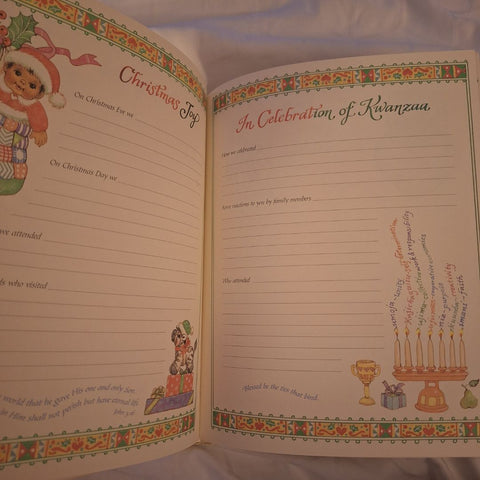 Christmas Joy
On Christmas Eve we
On Christmas Day we
we attended
ds who visited
world that he gave His one and only Son,
in Him shall not perish but have eternal life
John 3:16
In Celebration of Kwanzaa
How we celebrated
Some reactions to you by family members
Who attended
Umoja-unity
Kujichagulia-self determination
Ujima-collective work & responsibility
Ujamaa-cooperative economics
Nia-purpose
Kuumba-creativity
Imani-faith
"Blessed be the ties that bind.